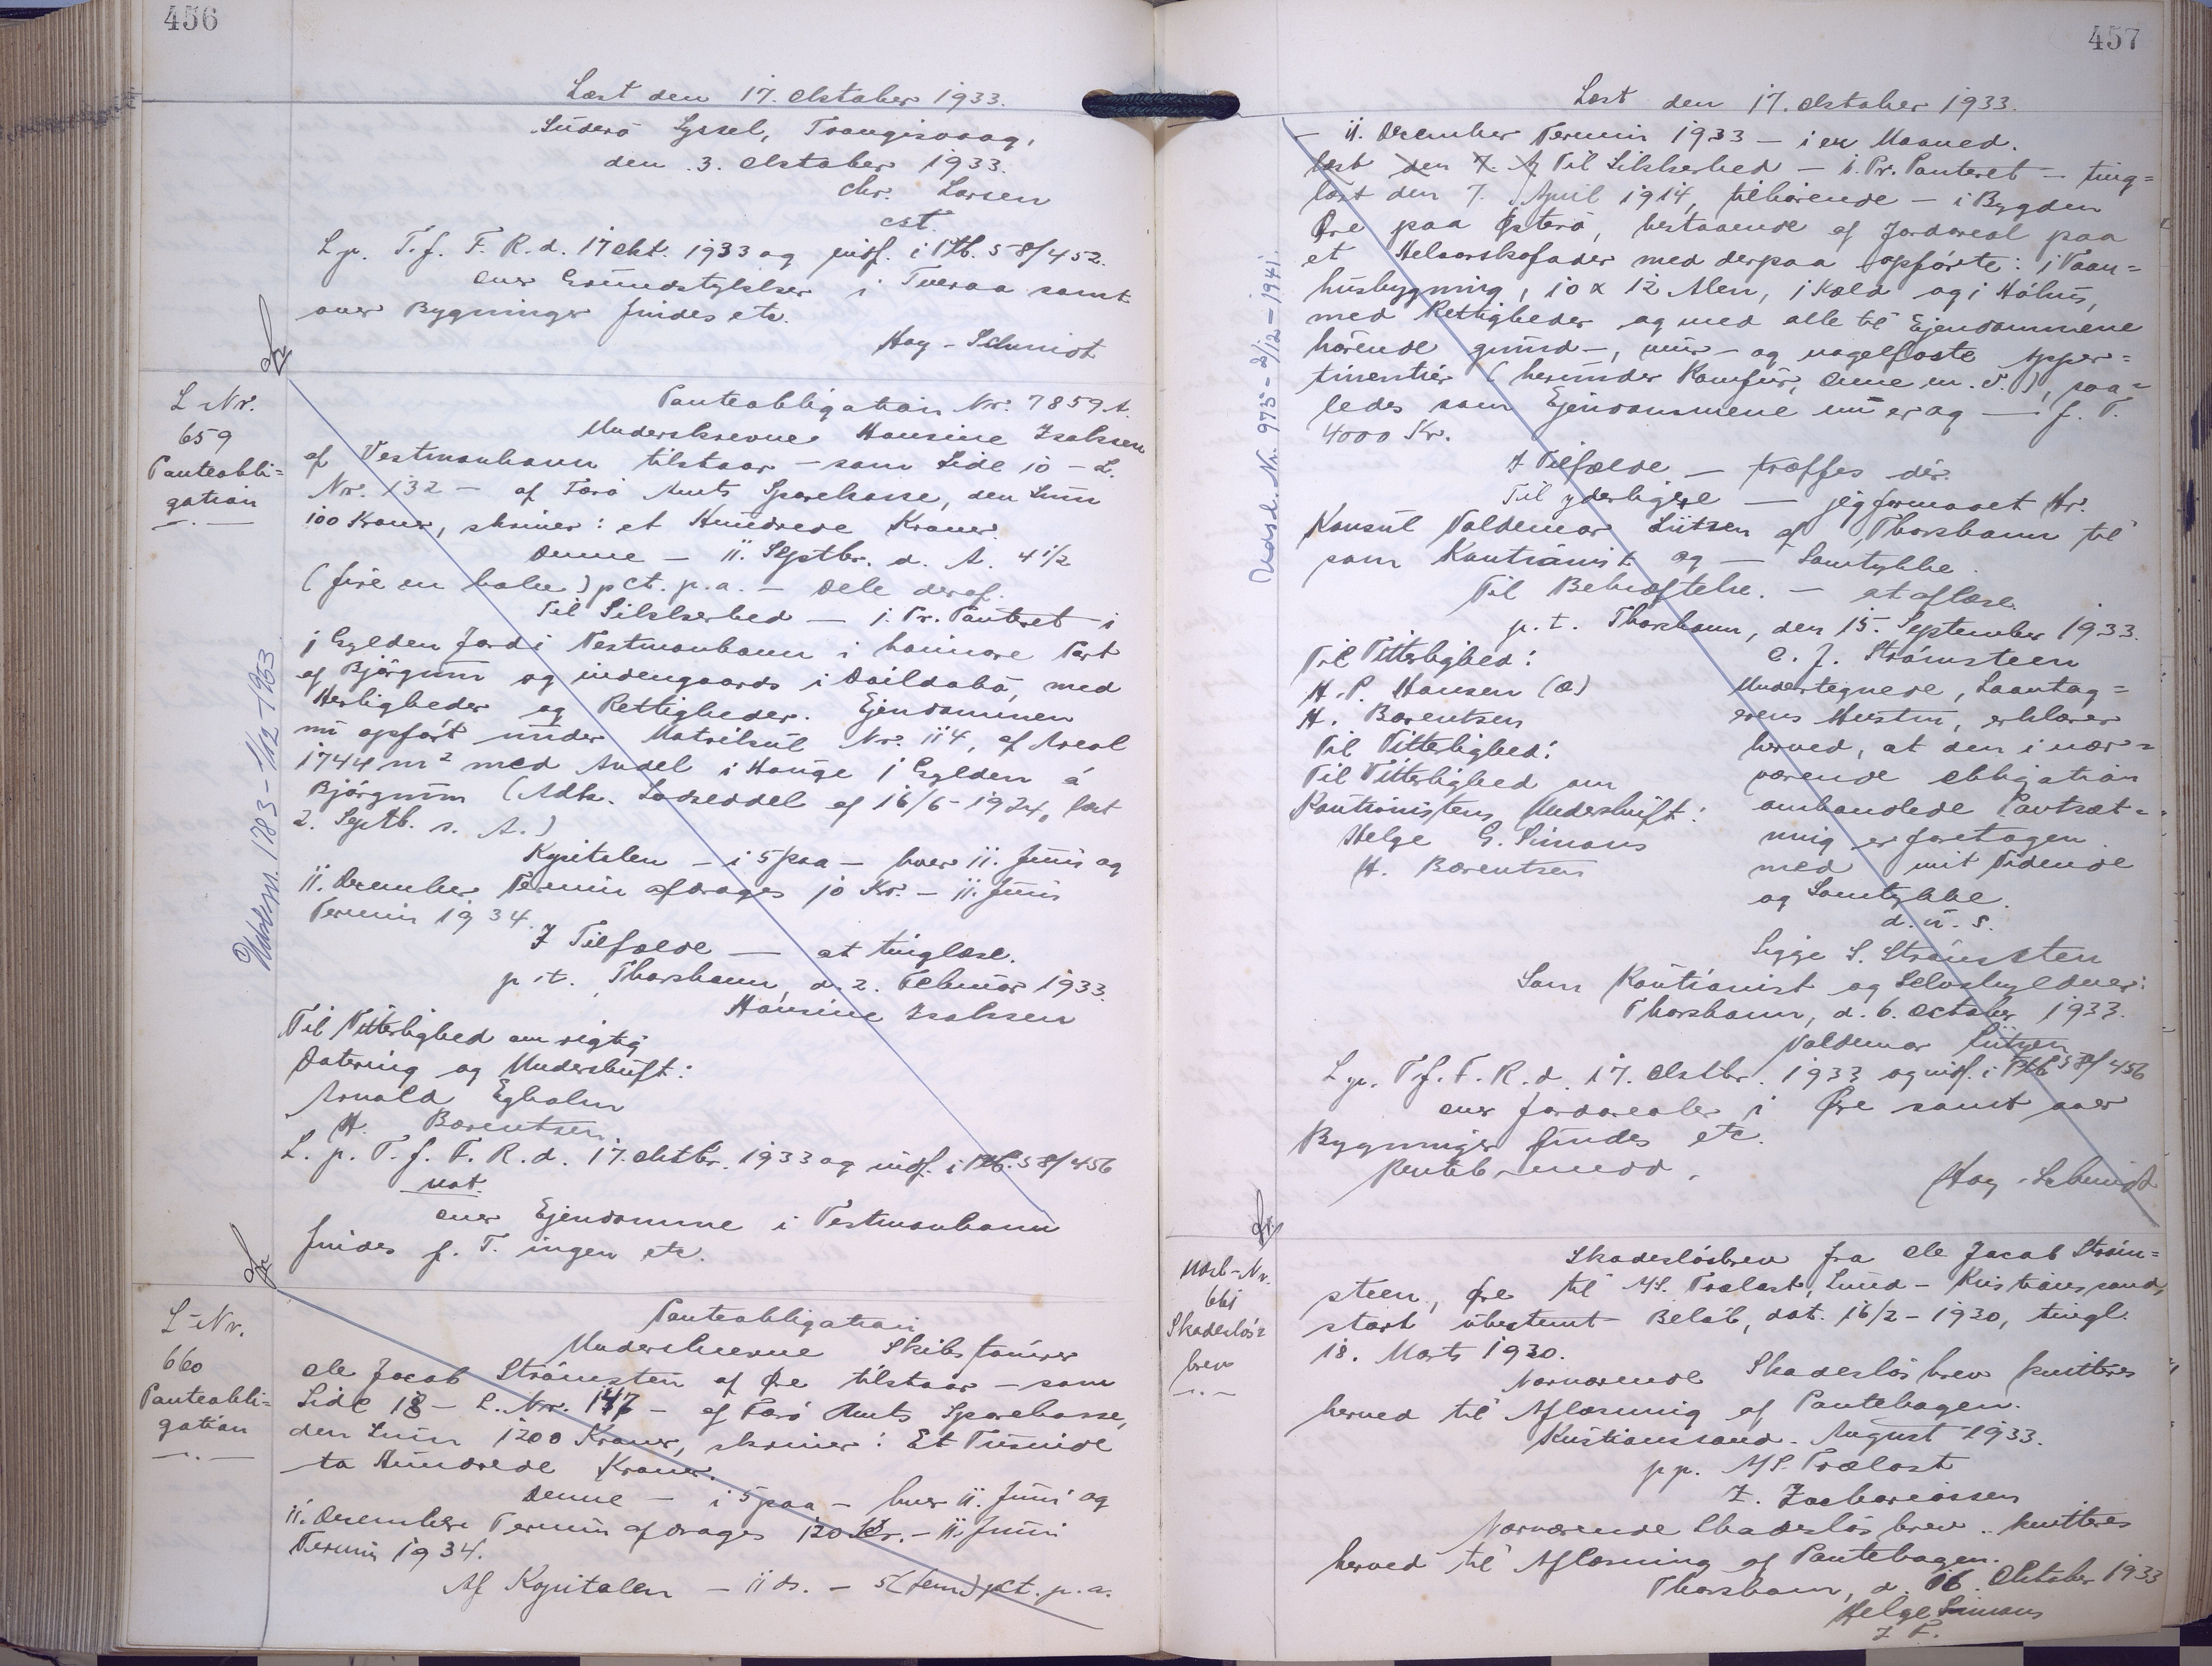 456
Læst den 17. Oktober 1933.
Suderö Syssel, Trangisvaag,
den 3. Oktober 1933.
Chr. Larsen
cst.
L. p. T. f. F. R. d. 17 Okt. 1933 og indf. i Ptb. 58/452.
over Grundstykker i Tveraa samt
over Bygninger findes etc.
Høg-Schmidt
L-Nr.
659
Panteobli=
gation
Panteobligation Nr. 7859 A.
Underskrevne Hansine Isaksen
af Vestmanhavn tilstaar – som Side 10 – L.
Nr. 132 – af Færö Amts Sparekasse, den Sum
100 Kroner, skriver: et Hundrede Kroner.
Denne – 11. Septbr. d. A. 4 1/2
(fire en halv) pCt. p.a. – Dele deraf.
Til Sikkerhed – 1. Pr. Panteret i
1 Gylden Jord i Vestmanhavn i
af Björgum og indengaards i med
Herligheder og Rettigheder. Ejendommen
nu opfört under Matrikul Nr. 114, af Areal
1744 m² med Andel i Hauge 1 Gylden á
Björgum (Adk. Lodseddel af 16/6-1924, læst
2. Septb. s. A.)
Kapitalen – i 5 paa – hver 11. Juni og
11. December Termin afdrages 10 Kr. – 11. Juni
Termin 1934.
I Tilfælde — at tinglæse.
p. t. Thorshavn, d. 2. Februar 1933.
Hansine Isaksen
Til Vitterlighed om rigtig
Datering og Underskrift:
Arnold Egholm
H. Bærentsen.
L. p. T. f. F. R. d. 17. Oktbr. 1933 og indf. i Ptb. 58/456
Not.
over Ejendomme i Vestmanhavn
findes p. T. ingen etc.
Udslsm. 1283 – 1/12 – 1953
L-Nr.
660
Panteobli=
gation
Panteobligation
Underskrevne Skibstömrer
Ole Jacob Strömsten af Øre tilstaar – som
Side 18 – L. Nr. 147 – af Færö Amts Sparekasse,
den Sum 1200 Kroner, skriver: Et Tusinde
to Hundrede Kroner.
Denne – i 5 paa – hver 11. Juni og
11. December Termin afdrages 120 Kr. – 11. Juni
Termin 1934.
Af Kapitalen – 11 ds. – 5 (fem) pCt. p. a.
457
Læst den 17. Oktober 1933.
– 11. December Termin 1933 – i en Maaned.
Til Sikkerhed – 1. Pr. Panteret – ting=
læst den 7. April 1914, tilhörende – i Bygden
Øre paa Østerö, bestaaende af Jordareal paa
et med derpaa opförte: 1 Vaan=
husbygning, 10 x 12 Alen, 1 Kæld og 1 Hölus,
med Rettigheder og med alle til Ejendommene
hörende grund-, mur- og nagelfaste Apper=
tinentier (herunder Komfur, Ovne m. v.), saa=
ledes som Ejendommene nu er og — f. T.
4000 Kr.
I Tilfælde — træffes dér.
Til yderligere — jeg formaaet Hr.
Konsul Valdemar Lützen af Thorshavn til
som Kautionist og — Samtykke.
Til Bekræftelse. – at aflæse.
p. t. Thorshavn, den 15. September 1933.
Til Vitterlighed: O. J. Strömsteen
H. P. Hansen (æ) Undertegnede, Laantag=
H. Bærentsen erens Hustru, erklærer
Til Vitterlighed: herved, at den i nær=
Til Vitterlighed om værende Obligation
Kautionistens Underskrift: omhandlede Pantsæt=
Helge G. Simons ning er foretagen
H. Bærentsen med mit Vidende
og Samtykke.
d. u. s.
Sigge S. Strömsten
Som Kautionist og Selvskyldner:
Thorshavn, d. 6. October 1933.
Valdemar Lützen
L. p. T. f. F. R. d. 17. Oktbr. 1933 og indf. i Ptb. 58/456
over Jordarealer i Øre samt over
Bygninger findes etc.
Høg-Schmidt
Udsl. Nr. 975 – 2/12 – 1941.
Udsl-Nr.
661
Skadeslös=
brev
Skadeslösbrev fra Ole Jacob Ström=
steen, Øre til A/S. Trælast, Lund – Kristianssand,
stort ubestemt Belöb, dat. 16/2-1930, tingl.
18. Marts 1930.
Nærværende Skadeslösbrev kvitteres
herved til Aflæsning af Pantebogen.
Kristianssand. August 1933.
pp. A/S. Trælast
Z. Zachariassen
Nærværende Skadeslösbrev .. kvitteres
herved til Aflæsning af Pantebogen.
Thorshavn, d. 16. Oktober 1933
Helge Simons